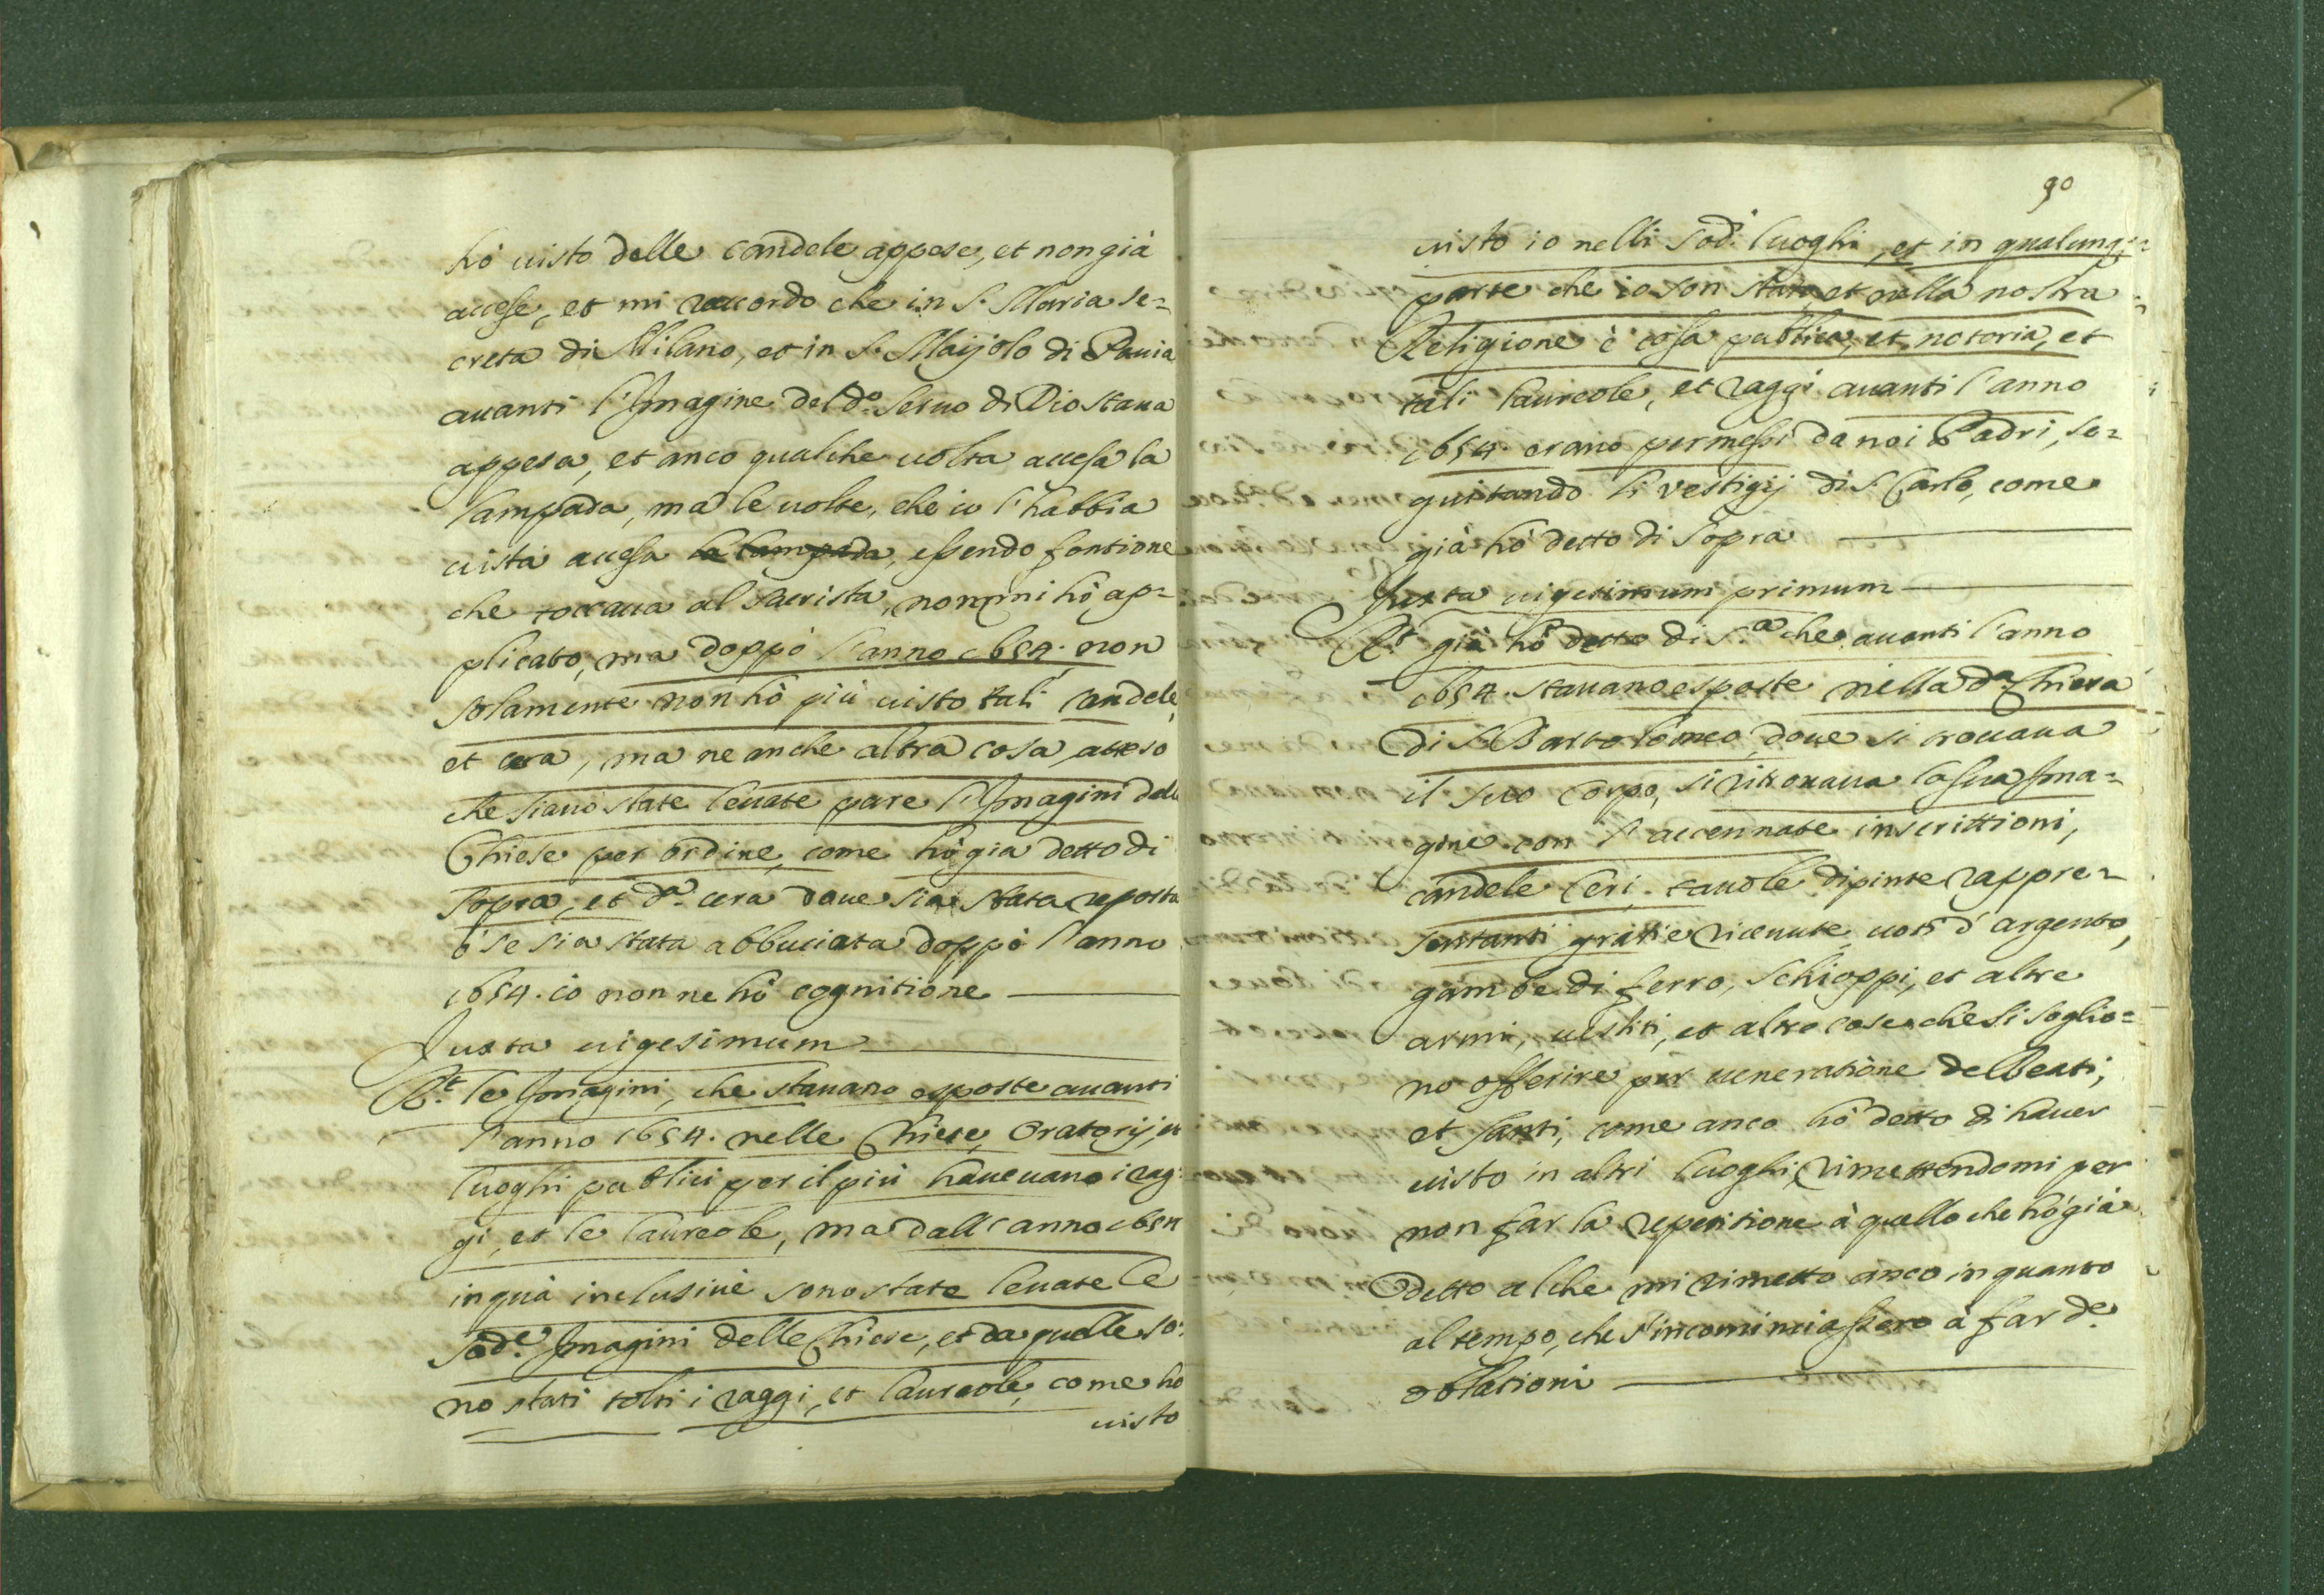 hò uisto delle candele appese, et non già
accese, et mi raccordo che in S. Maria se=
creta di Milano, et in S. Maijolo di Pauia
auanti l'Imagine del d.º Seruo di Dio staua
appesa, et anco qualche uolta accesa la
lampada, ma le uolte, che io l'habbia
uista accesa la lampada, essendo fontione
che toccaua al sacrista, non mi hò ap=
plicato, ma doppò l'anno 1654. non
solamente non hò più uisto tali candele,
et cera, ma ne anche altra cosa, atteso
che siano state leuate pare l'Imagini dalle
Chiese per ordine, come hò gia detto di
sopra, et d.ª cera doue sia stata reposta
ò se sia stata abbuciata doppò l'anno
1654. io non ne hò cognitione
Juxta uigesimum
R.t le Imagini, che stauano esposte auanti
l'anno 1654. nelle Chiese, Oratorij, et
luoghi publici per il più haueuano i rag=
gi, et le laureole, ma dall'anno 1654
in quà inclusiuè sono state leuate le
sod.e Imagini delle Chiese, et da quelle so=
no stati tolti i raggi, et laureole, come ho
uisto
90
uisto io nelli sod.i luoghi, et in qualunq;=
parte che io son stato, et nella nostra
Religione è cosa publica, et notoria, et
tali laureole, et raggi auanti l'anno
1654. erano permessi da noi Padri, se=
guitando li vestigij di S. Carlo, come
già hò detto di sopra
Juxta uigesimum primum
R.t già hò detto di s.ª che auanti l'anno
1654. stauano esposte nella d.ª Chiesa
di S. Bartolomeo, doue si trouaua
il suo corpo, si ritrouaua la sua Ima=
gine con l'accennate inscrittioni,
candele Ceri, tauole dipinte rappre=
sentanti gratie riceuute, uoti d'argento,
gambe di ferro, schioppi, et altre
armi, uestiti, et altre cose che si soglio=
no offerire per ueneratione delBeati,
et Santi, come anco hò detto di hauer
uisto in altri luoghi, rimettendomi per
non far la repetitione à quello che hò già
detto alche mi rimetto anco in quanto
al tempo, che s'incominciassero à far d.e
oblationi